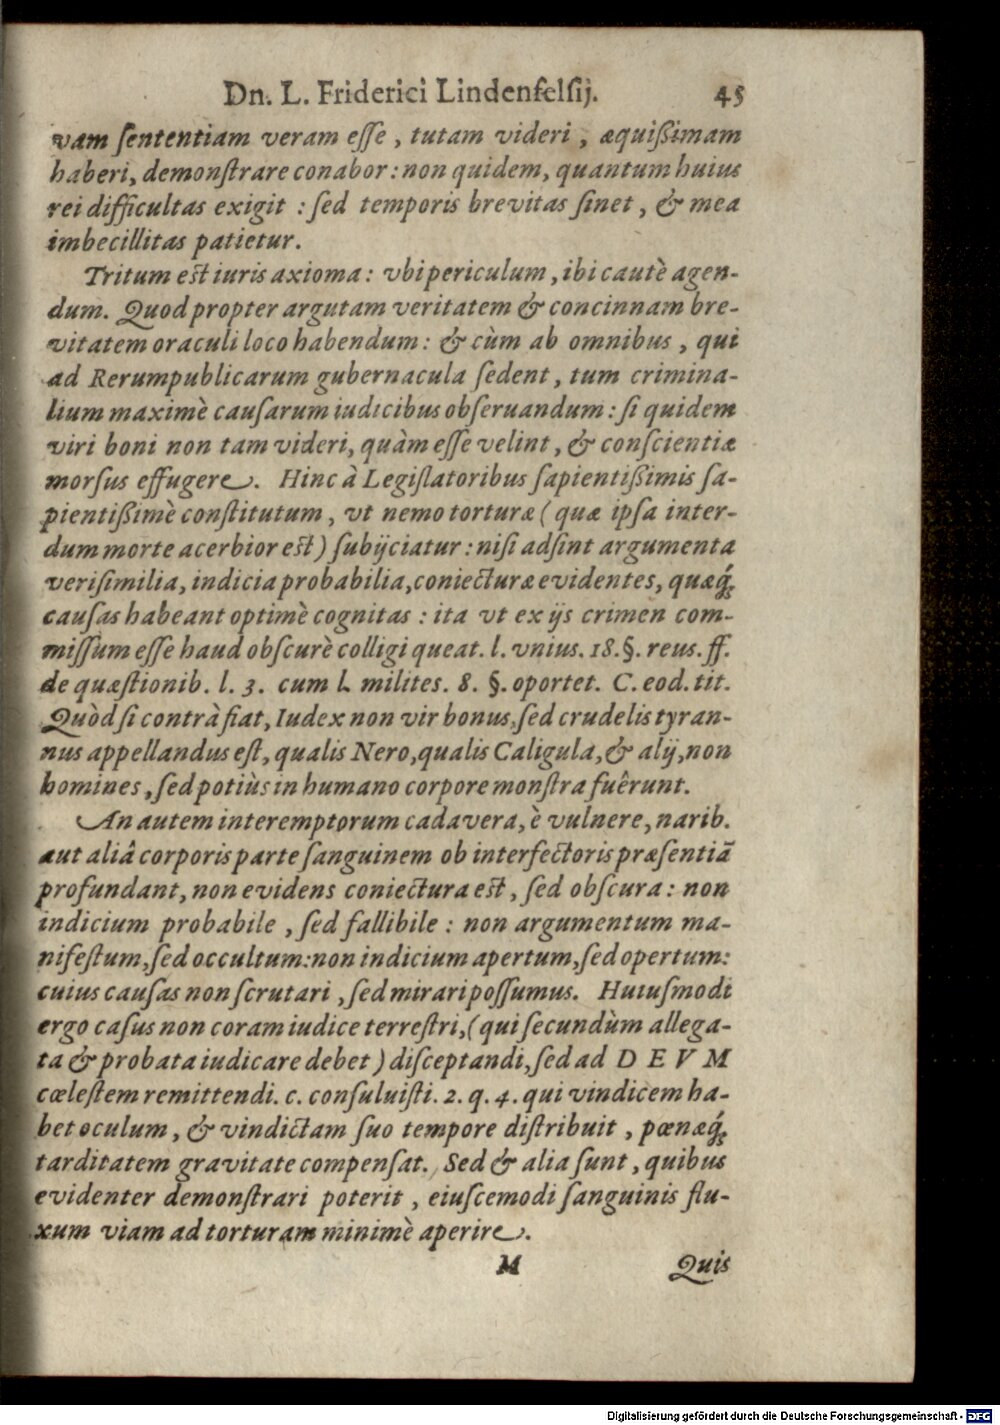 Dn. L. Friderici Lindenfelsij. 45
vam ſententiam veram eſſe, tutam videri, æquiſſimam
haberi, demonſtrare conabor: non quidem, quantum huius
rei difficultas exigit: ſed temporis brevitas ſinet, & mea
imbecillitas patietur.
Tritum eſt iuris axioma: vbi periculum, ibi cautè agen-
dum. Quod propter argutam veritatem & concinnam bre-
vitatem oraculi loco habendum: & cùm ab omnibus, qui
ad Rerumpublicarum gubernacula ſedent, tum crimina-
lium maximè cauſarum iudicibus obſeruandum: ſi quidem
viri boni non tam videri, quàm eſſe velint, & conſcientiæ
morſus effugere. Hinc à Legiſlatoribus ſapientißimis ſa-
pientißimè conſtitutum, vt nemo torturæ (quæ ipſa inter-
dum morte acerbior eſt) ſubijciatur: niſi adſint argumenta
veriſimilia, indicia probabilia, coniecturæ evidentes, quæq́;
cauſas habeant optimè cognitas: ita vt ex ijs crimen com-
miſſum eſſe haud obſcurè colligi queat. l. vnius. 18. §. reus. ff.
de quæſtionib. l. 3. cum l. milites. 8. §. oportet. C. eod. tit.
Quòd ſi contrà fiat, Iudex non vir bonus, ſed crudelis tyran-
nus appellandus eſt, qualis Nero, qualis Caligula, & alij, non
homines, ſed potiùs in humano corpore monſtra fuêrunt.
An autem interemptorum cadavera, è vulnere, narib.
aut aliâ corporis parte ſanguinem ob interfectoris præſentiã
profundant, non evidens coniectura eſt, ſed obſcura: non
indicium probabile, ſed fallibile: non argumentum ma-
nifeſtum, ſed occultum: non indicium apertum, ſed opertum:
cuius cauſas non ſcrutari, ſed mirari poſſumus. Huiuſmodi
ergo caſus non coram iudice terreſtri, (qui ſecundùm allega-
ta & probata iudicare debet) diſceptandi, ſed ad DEVM
cœleſtem remittendi. c. conſuluiſti. 2. q. 4. qui vindicem ha-
bet oculum, & vindictam ſuo tempore diſtribuit, pœnæq́;
tarditatem gravitate compenſat. Sed & alia ſunt, quibus
evidenter demonſtrari poterit, eiuſcemodi ſanguinis flu-
xum viam ad torturam minimè aperire.
M Quis
Digitalisierung gefördert durch die Deutsche Forschungsgemeinschaft - DFG